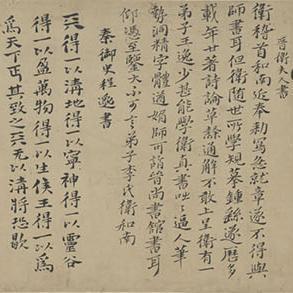 晉衛夫人書
衛稽首和南近奉勅寫急就章遂不得與
師書耳但衛隨世所學規摹鍾繇遂歷多
載年廿著詩論草隸通解不敢上呈衛有一
弟子王逸少甚能學衛真書咄咄逼人筆
勢洞精字體遒媚師可詣晉尚書館書耳
仰憑至鑒大不可言弟子李氏衛和南
秦御史程邈書
天得一以清地得一以寧神得一以靈谷
得一以盈萬物得一以生侯王得一以為
為天下正其致之天无以清將恐歇